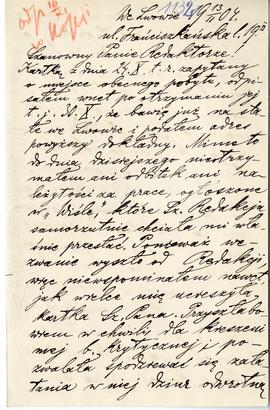 odp. 16/II
kopi
1132
We Lwowie 13/II 04.
ul. Franciszkańska l. 19 II
Szanowny Panie Redaktorze.
Kartką z dnia 27. X. t. r. zapytany
o miejsce obecnego pobytu, odpi-
sałem wnet po otrzymaniu jej
t. j. X, że bawię już na sta-
łe we Lwowie i podałem adres
powyższy dokładny. Mimo to
do dnia dzisiejszego nie otrzy-
małem ani odbitek ani na-
leżytości za prace, ogłoszone
w „Wiśle", które Sz. Redakcja
samorzutnie chciała mi wła-
śnie przesłać. Ponieważ we-
zwanie wyszło od Redakcji
więc nie wspominałem nawet,
jak wielce mnie ucieszyła
kartka Sz. Pana. Przyszła bo-
wiem w chwili dla kieszeni
mej b. krytycznej i po-
zwalała spodziewać się zała-
tania w niej dziur odwrotną